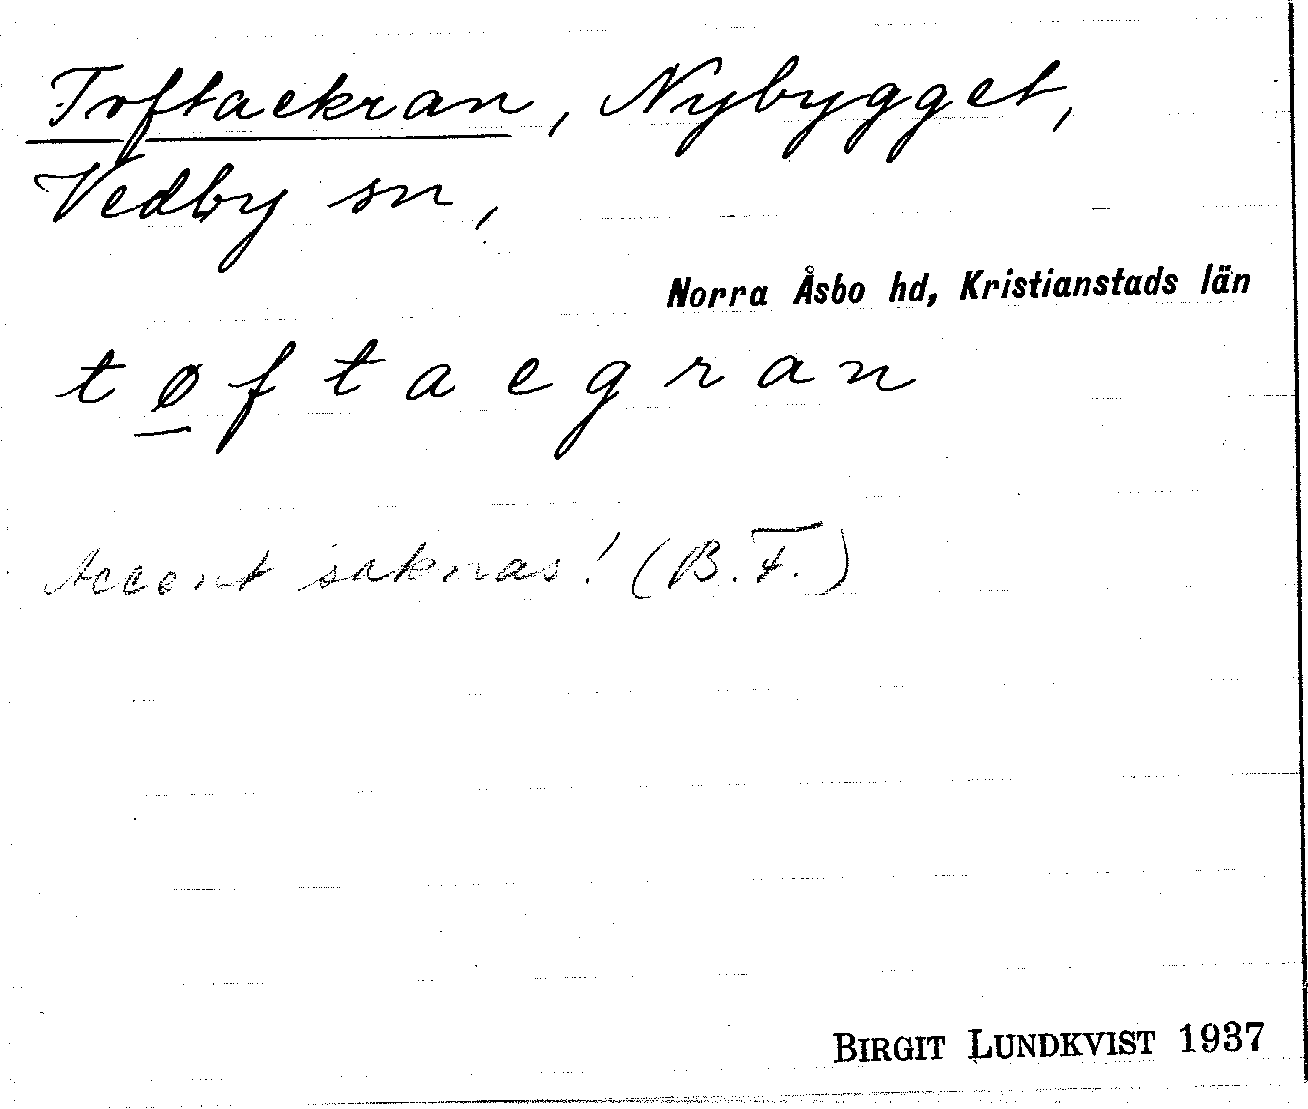 Toftaekran, Nybygget,
Vedby sn,
Norra Åsbo hd, Kristianstads län
t ø f t a e g r a n
Accent saknas! (B.F.)
BIRGIT LUNDKVIST 1937